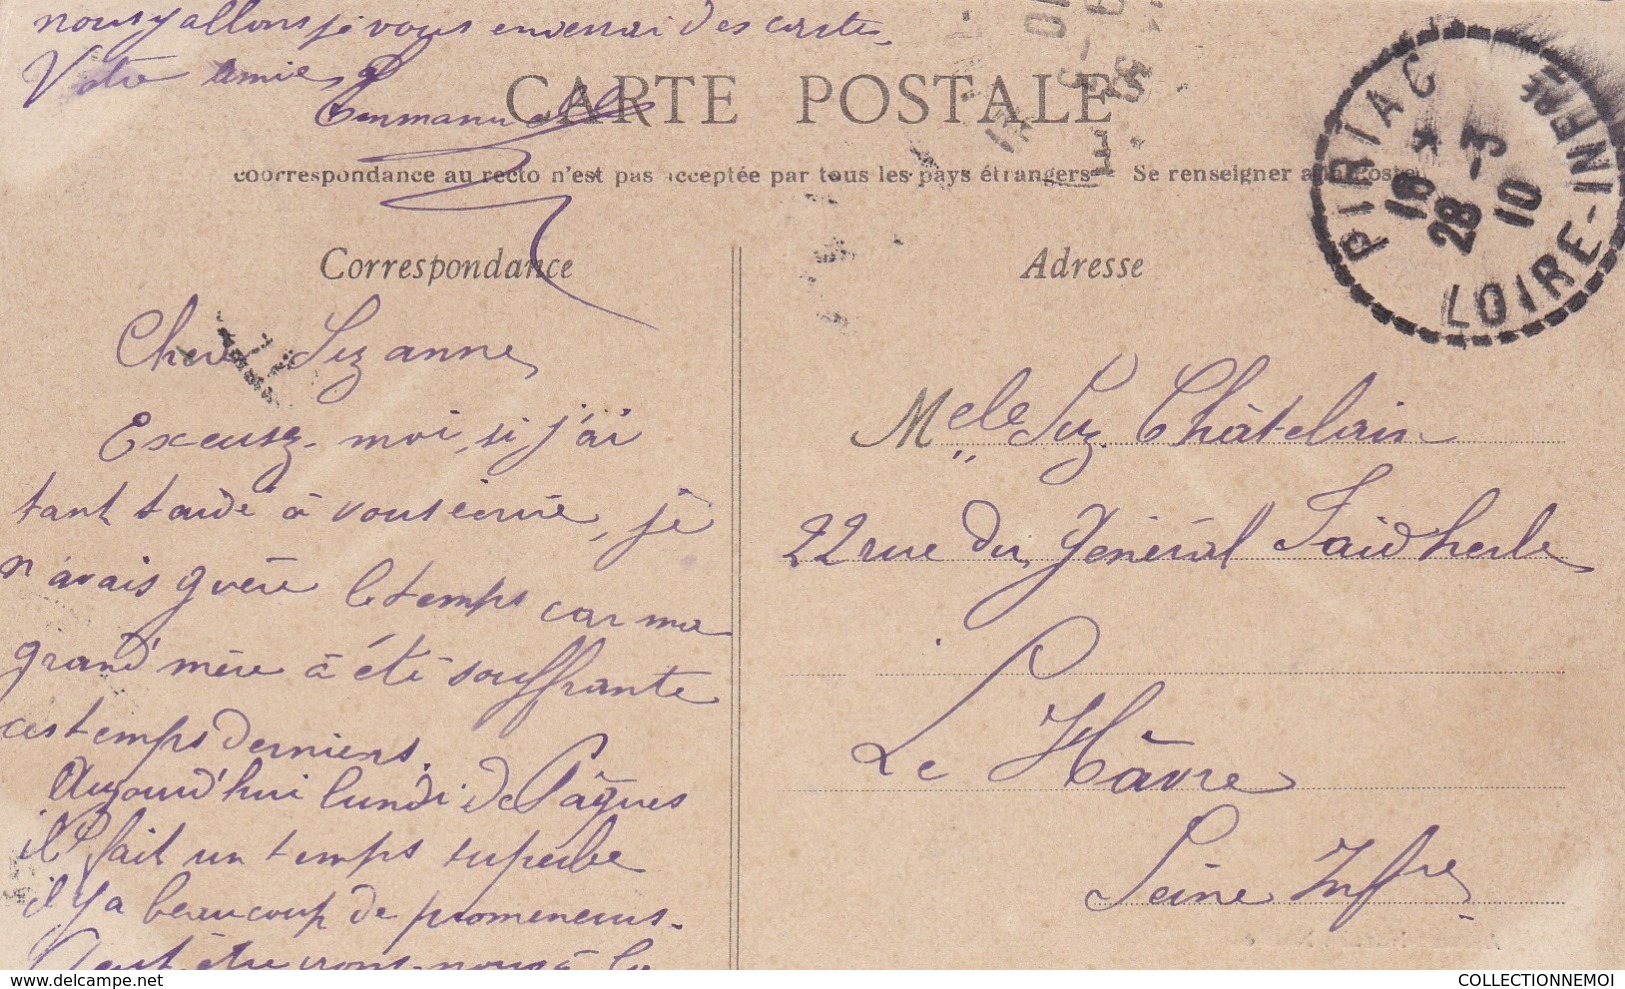 nous y allons je vous enverrai des cartes
Votre Amie
Emmanuelle
CARTE POSTALE
coorrespondance au recto n'est pas acceptée par tous les pays étrangers Se renseigner à la Poste
PIRIAC
16 *
28 -3
10
LOIRE-INFRE
Correspondance
Adresse
Chere Suzanne,
Excusez-moi, si j'ai
tant tardé à vous écrire, je
n'avais guère le temps car ma
grand'mère à été souffrante
ces temps derniers.
Aujourd'hui lundi de Pâques
il fait un temps superbe
il y a beaucoup de promeneurs.
Peut-être irons-nous à la
Melle Suz. Châtelain
22 rue du Général Faidherbe
Le Hâvre
Seine Infre
COLLECTIONNEMOI